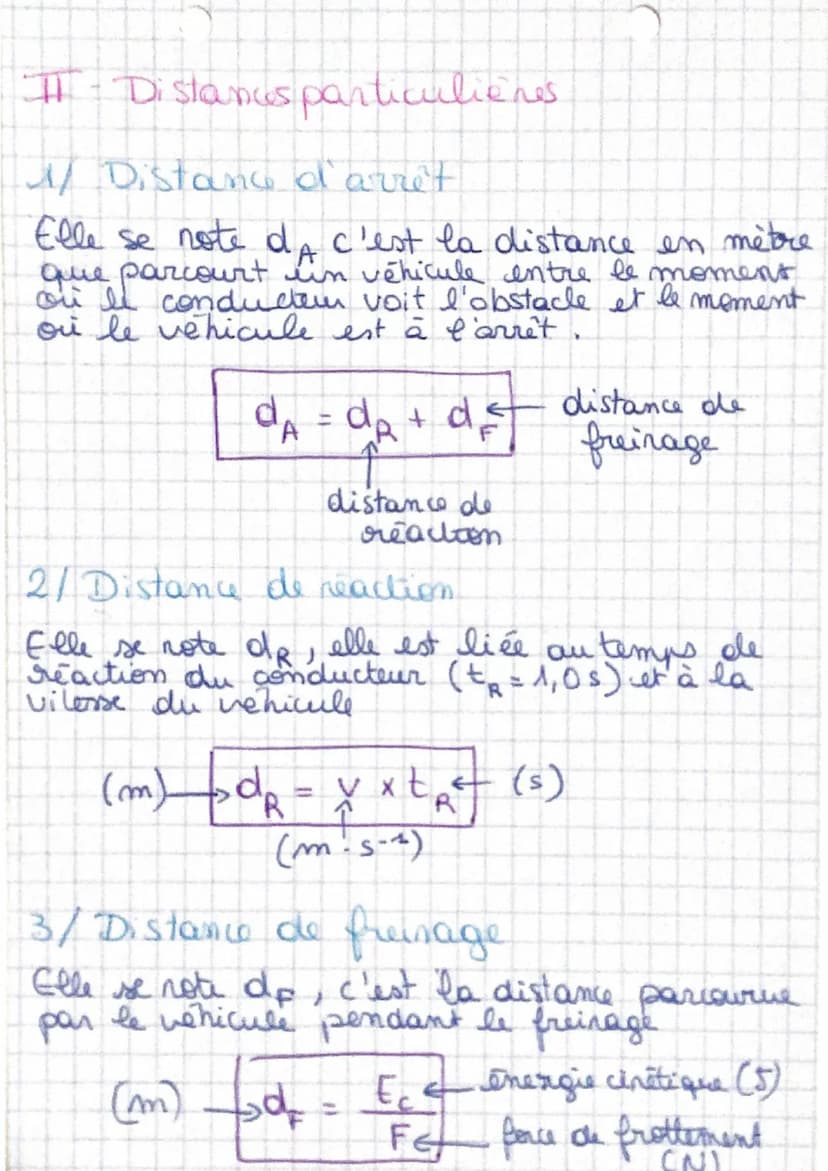 II - Distances particulières
1/ Distance d'arrêt
Elle se note dA c'est la distance en mètre
que parcourt un véhicule entre le moment
où le conducteur voit l'obstacle et le moment
où le véhicule est à l'arrêt.
dA = dR + dF ← distance de
freinage
distance de
réaction
2/ Distance de réaction
Elle se note dR, elle est liée au temps de
réaction du conducteur (tR = 1,0 s) et à la
vitesse du véhicule
(m) → dR = v x tR ← (s)
(m.s-1)
3/ Distance de freinage
Elle se note dF, c'est la distance parcourue
par le véhicule pendant le freinage
(m) → dF = Ec / F ← énergie cinétique (J)
← force de frottement
(N)